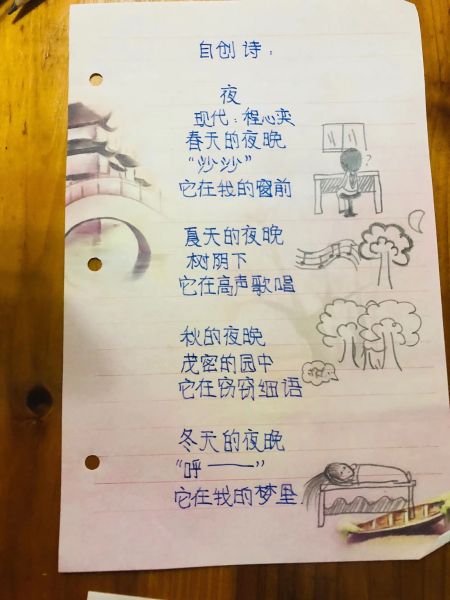 自创诗：
夜
现代：程心奕
春天的夜晚
“沙沙”
它在我的窗前
夏天的夜晚
树阴下
它在高声歌唱
秋的夜晚
茂密的园中
它在窃窃细语
冬天的夜晚
“呼——”
它在我的梦里.